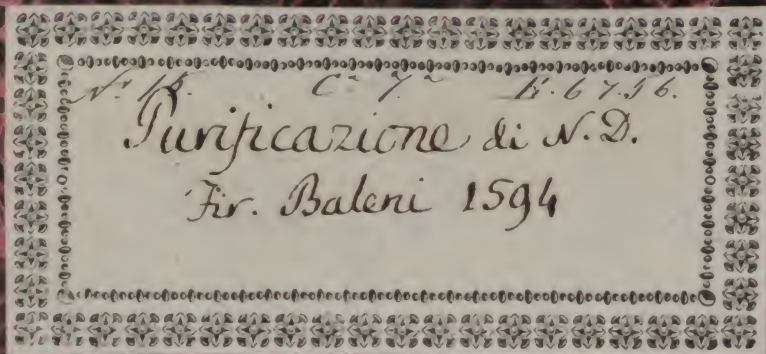 Nº 18. Cª 7.ª K. 6 7.56.
Purificazione di N. D.
Fir. Baleni 1594